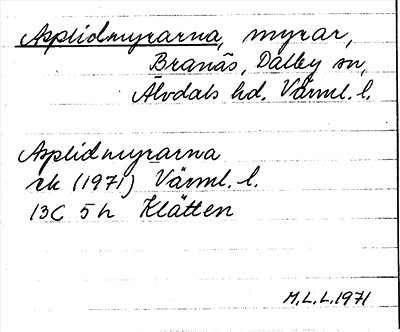 Asplidmyrarna, myrar,
Branäs, Dalby sn,
Älvdals hd. Värml. l.
Asplidmyrarna
ek (1971) Värml. l.
13C 5h Klätten
M.L.L. 1971